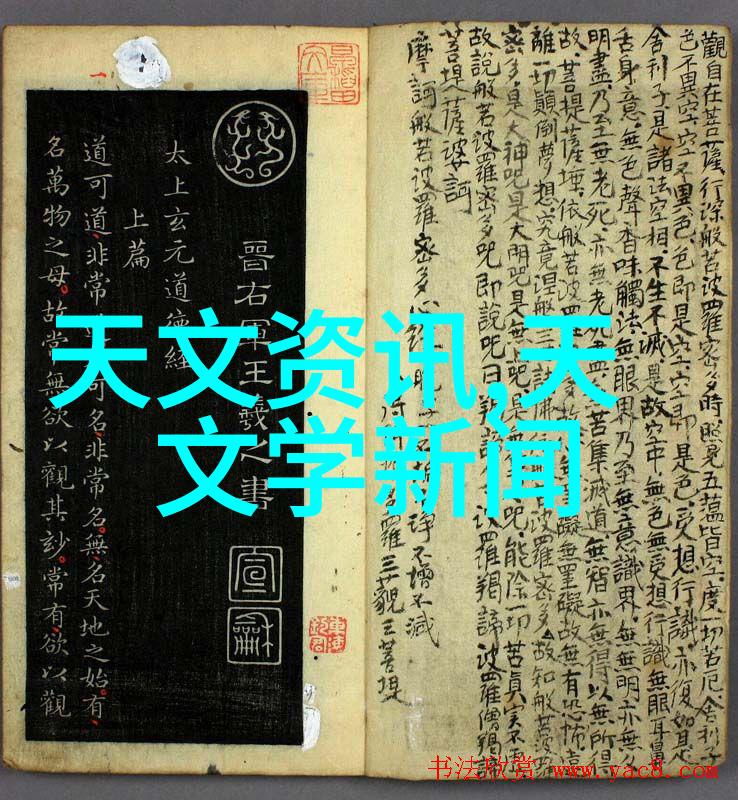 天文资讯,天
文学新闻
晉右軍王羲之書
宣
龢
太上玄元道德經
上篇
道可道非常 可名非常名無名天地之始有
名萬物之母故常無欲以觀其妙常有欲以觀
觀自在菩薩行深般若波羅蜜多時照見五蘊皆空度一切苦厄舍利子
色不異空空不異色色即是空空即是色受想行識亦復如是
舍利子是諸法空相不生不滅 是故空中無色無受想行識無眼耳鼻
舌身意無色聲香味觸法無眼界乃至無意識界無無明亦無無
明盡乃至無老死亦無老死盡 苦集滅道無智亦無得以無所得
故菩提薩埵依般若波羅 多故 礙無罣礙故無有恐怖遠
離一切顛倒夢想究竟涅槃三 波羅蜜多故知般若波羅
密多是大神咒是大明咒是無上咒是無 咒能除一切苦真實不
故說般若波羅密多咒即說咒曰揭諦 波羅揭諦波羅僧揭諦
菩提薩婆訶
摩訶般若波羅密多心經
不增不減
羅三藐三菩提
书法欣赏 www.yac8.com